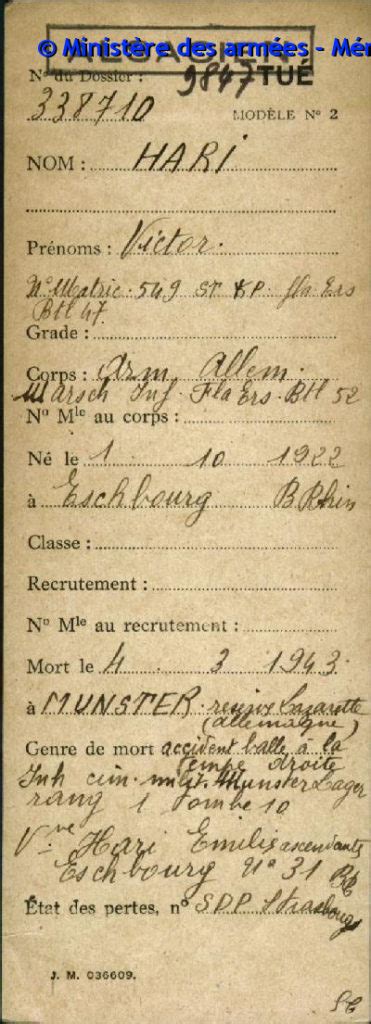 © Ministère des armées - Mém
N° du Dossier : 9847 TUÉ
338710 MODÈLE N° 2
NOM : HARI
Prénoms : Victor.
N° Matric. 549 ST KP. fla Ers
Btl 47
Grade :
Corps : Arm Allem.
Marsch Inf. Fla Ers. Btl 52
N° Mle au corps :
Né le 1 10 1922
à Eschbourg B Rhin
Classe :
Recrutement :
N° Mle au recrutement :
Mort le 4 3 1943
à MUNSTER reserve Lazarette
(allemagne)
Genre de mort accident balle à la
tempe droite
Inh cim. milit. Munster Lager
rang 1 Tombe 10
Vve Hari Emilie ascendants
Eschbourg N° 31
État des pertes, n° SDP Strasbourg
J. M. 036609.